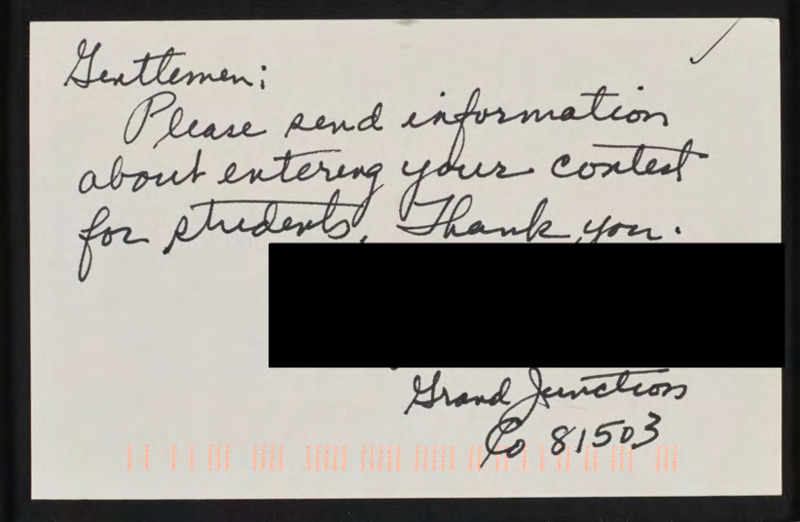 Gentlemen:
Please send information
about entering your contest
for students. Thank you.
Grand Junction
Co 81503